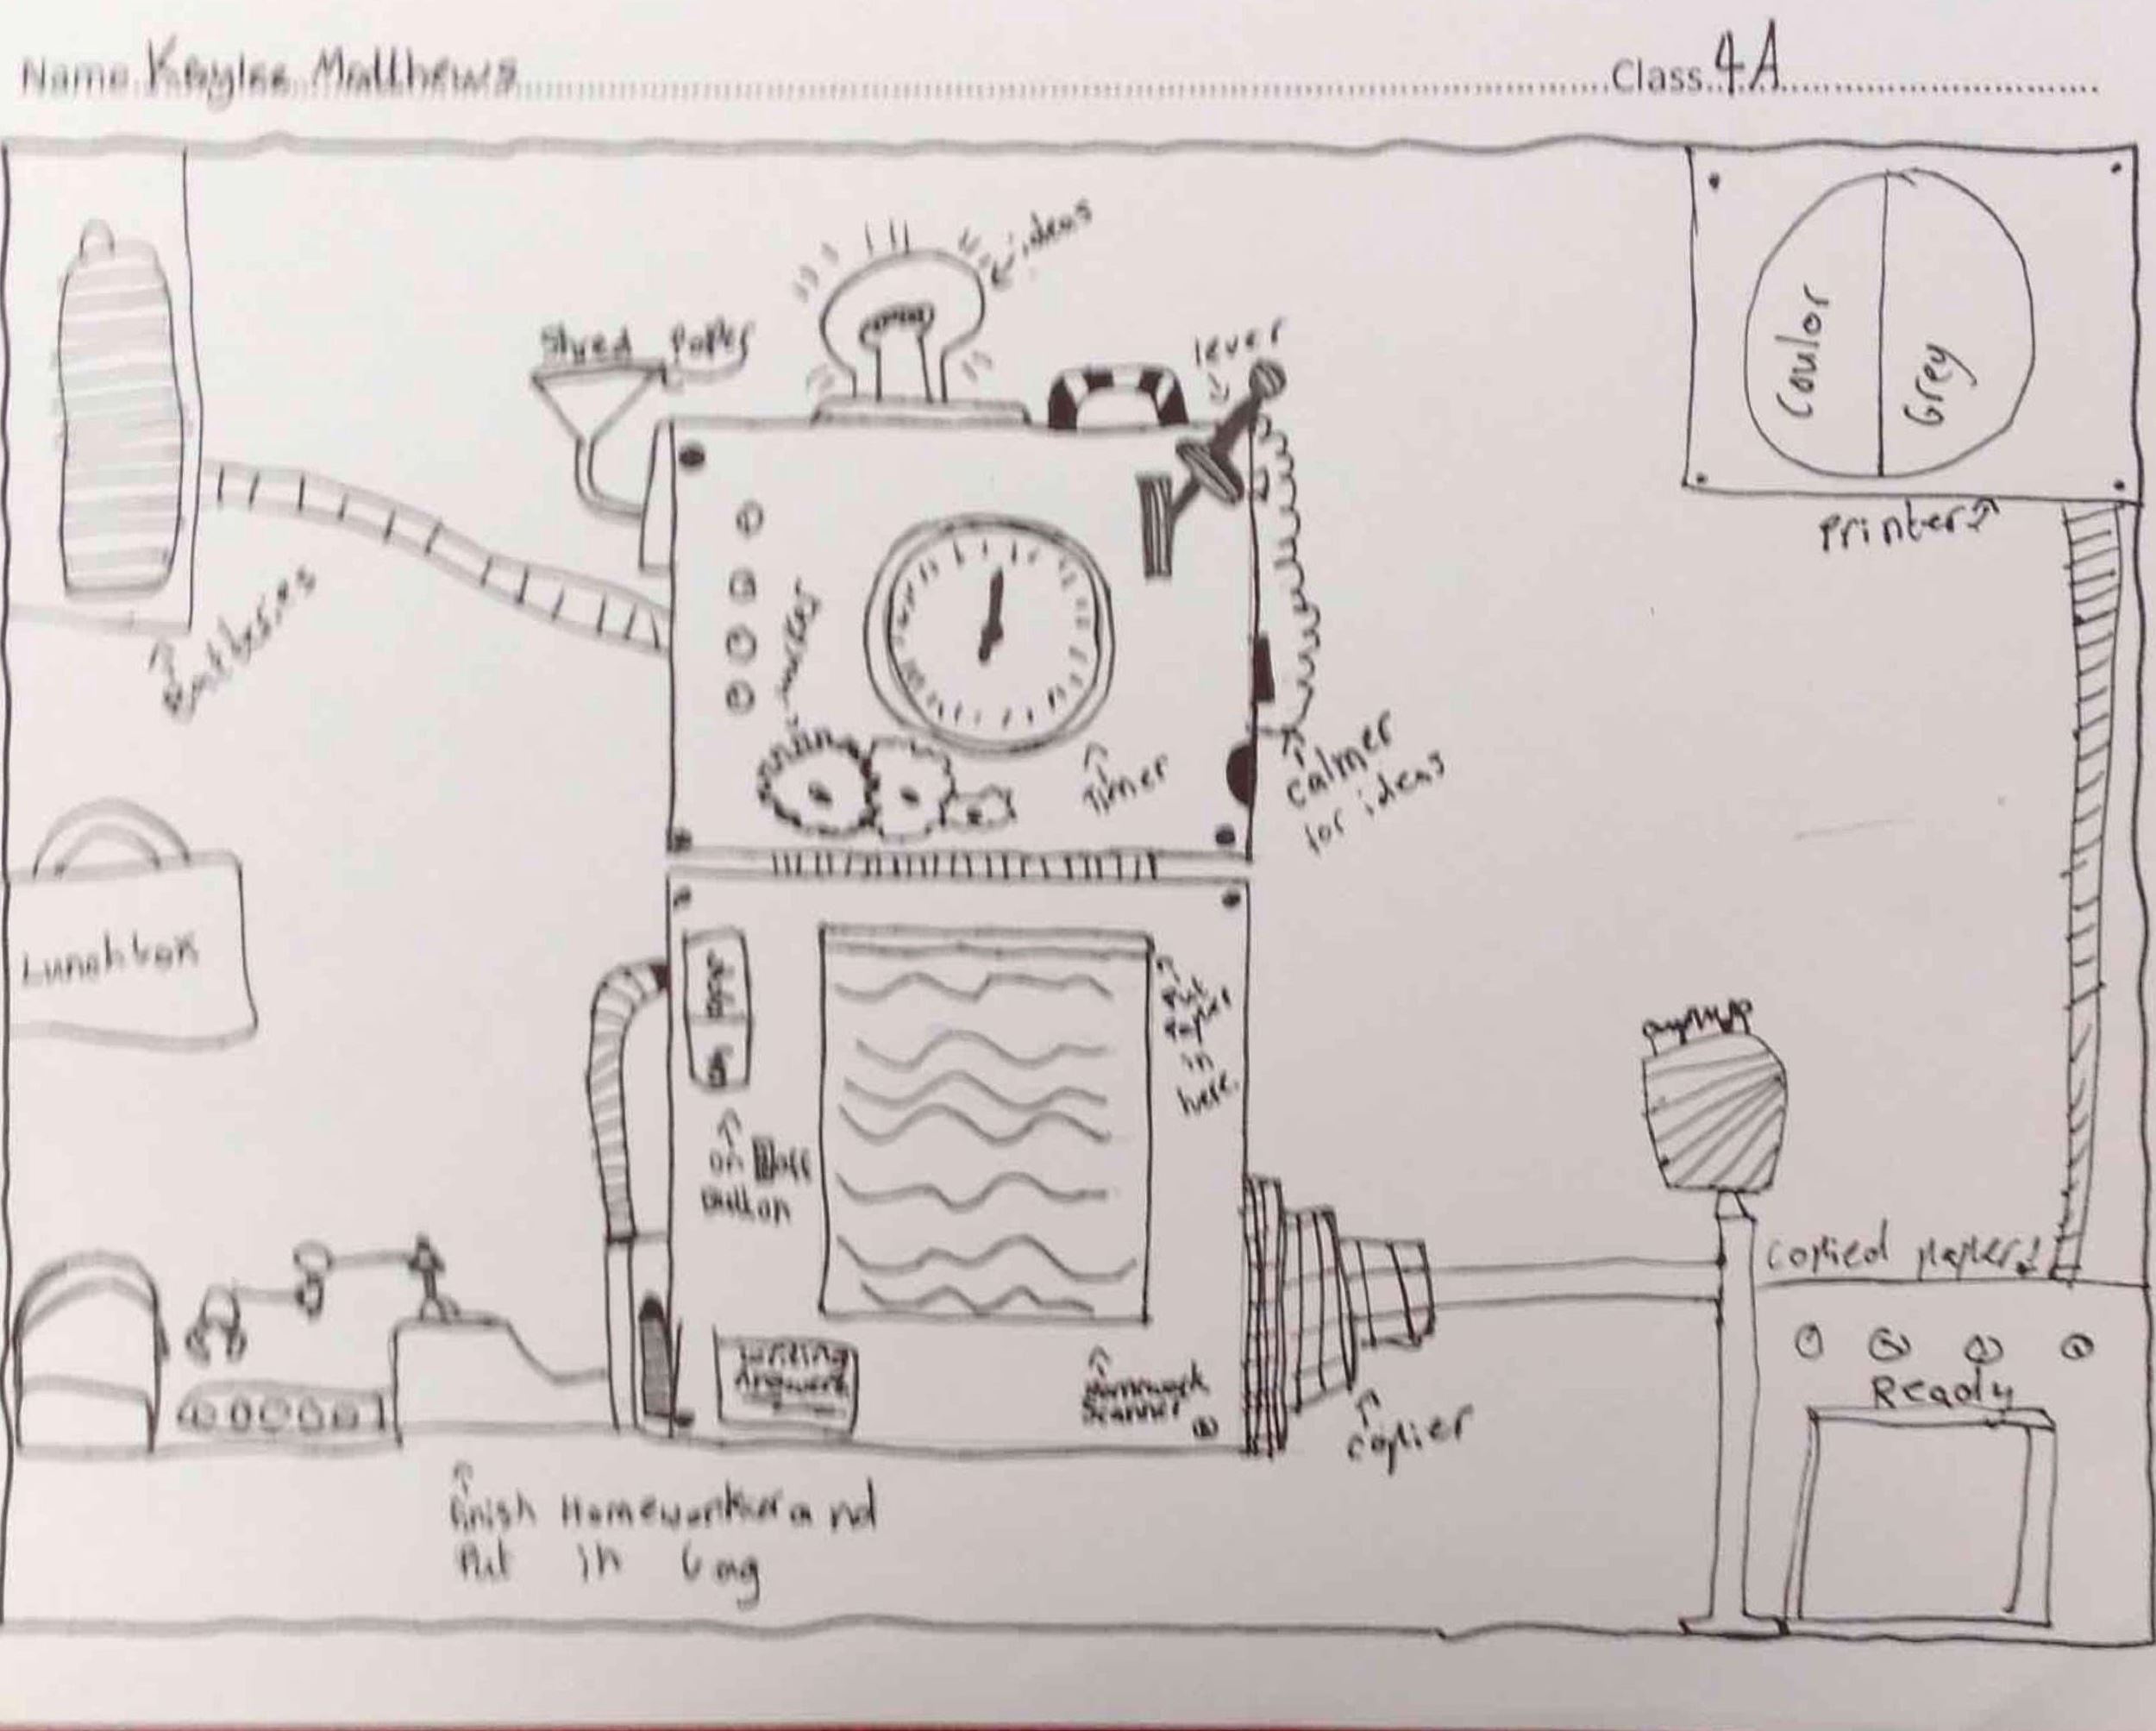 Name Kaylee Matthews Class 4A
ideas
Shred Paper
lever
Coulor
Grey
Printer
Batteries
Timer
calmer
for ideas
Lunchbox
OFF
ON
Put
Paper
in
here
on off
Button
copied paper
Ready
Writing
Answers
Homework
Scanner
copier
finish Homeworker and
Put in bag